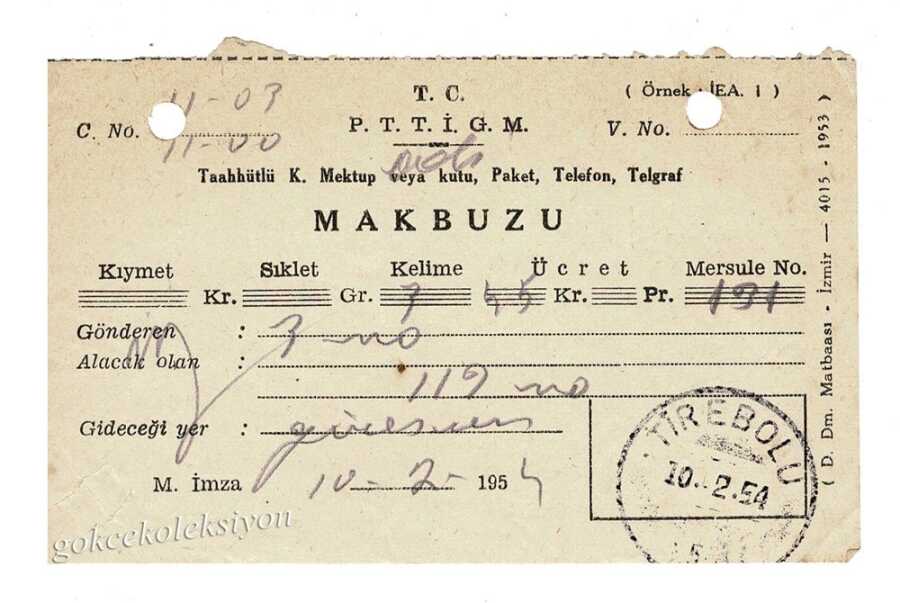 11-03
T. C.
( Örnek : İEA. 1 )
C. No.
P. T. T. İ. G. M.
V. No.
11-00
Taahhütlü K. Mektup veya kutu, Paket, Telefon, Telgraf
MAKBUZU
Kıymet Sıklet Kelime Ücret Mersule No.
Kr. Gr. 7 55 Kr. Pr. 191
Gönderen : 7 no
Alacak olan :
119 no
Gideceği yer : giresun
M. İmza 10-2-1954
TİREBOLU
10.2.54
( D. Dm. Matbaası - İzmir — 4015 - 1953 )
gokcekoleksiyon